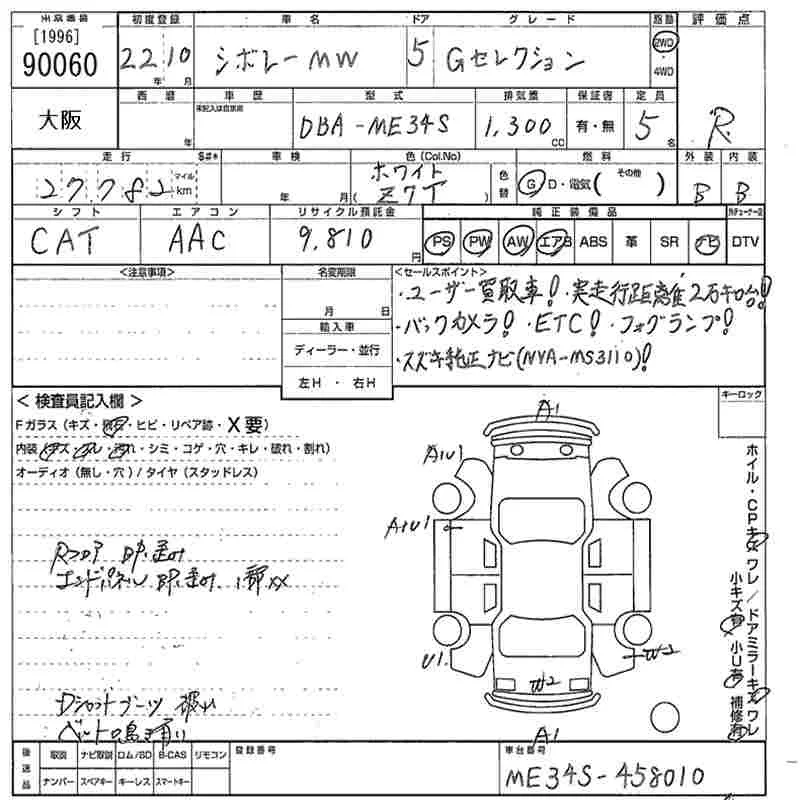 出品番号 初度登録 車名 ドア グレード 駆動 評価点
[1996] 90060 22年10月 シボレーMW 5 Gセレクション 2WD 4WD R
大阪 西暦 年 車歴 未記入は自家用 型式 DBA-ME34S 排気量 1,300cc 保証書 有・無 定員 5名
走行 S#* 車検 色(Col.No) 色替 燃料 外装 内装
27,782 マイル km 年 月 ホワイト (Z7T) G・D・電気( その他 ) B B
シフト エアコン リサイクル預託金 純正装備品
CAT AAC 9,810円 PS PW AW エアB ABS 革 SR ナビ DTV
<注意事項> 名変期限 <セールスポイント>
月 日 ・ユーザー買取車! 実走行距離2万キロ台!
輸入車 ・バックカメラ! ・ETC! ・フォグランプ!
ディーラー・並行 ・スズキ純正ナビ(NVA-MS3110)!
左H ・ 右H
<検査員記入欄> キーロック
Fガラス(キズ・飛石・ヒビ・リペア跡・X要)
内装(キズ・コゲ・汚れ・シミ・コゲ・穴・キレ・破れ・割れ)
オーディオ(無し・穴)/タイヤ(スタッドレス)
A1
AU1
A1U1
U1
W2
W2
A1
Rフロア BP.歪み
エンドパネル BP.歪み 1部XX
Dシャフトブーツ 破れ
ホイル・CPキズ ワレ/ドアミラーキズ ワレ
小キズ有 小U有 補修有
後送品 取説 ナビ取説 ロム/SD B-CAS リモコン 登録番号 車台番号
ナンバー スペアキー キーレス スマートキー ME34S-458010